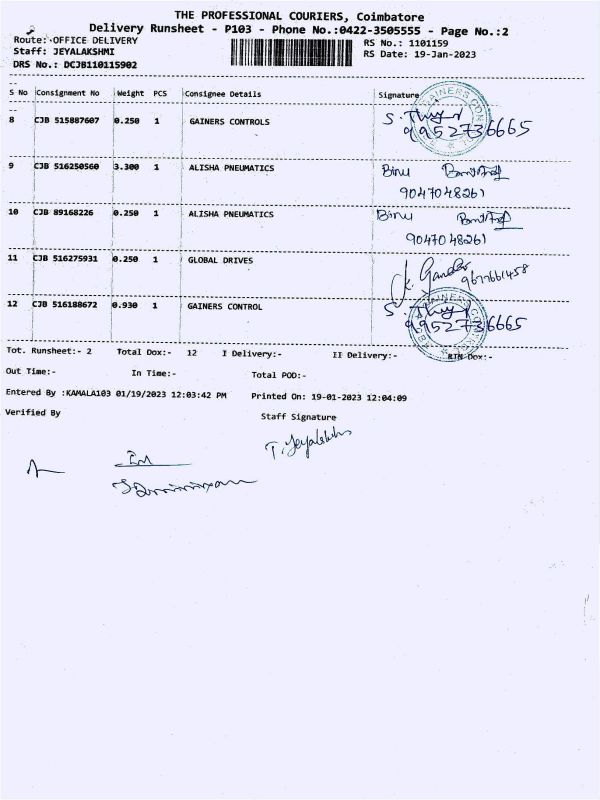 THE PROFESSIONAL COURIERS, Coimbatore
Delivery Runsheet - P103 - Phone No.:0422-3505555 - Page No.:2
Route: OFFICE DELIVERY
RS No.: 1101159
Staff: JEYALAKSHMI
RS Date: 19-Jan-2023
DRS No.: DCJB110115902
S No Consignment No Weight PCS Consignee Details Signature
8 CJB 515887607 0.250 1 GAINERS CONTROLS
9952736665
9 CJB 516250560 3.300 1 ALISHA PNEUMATICS Binu
9047048261
10 CJB 89168226 0.250 1 ALISHA PNEUMATICS Binu
9047048261
11 CJB 516275931 0.250 1 GLOBAL DRIVES
9677661458
12 CJB 516188672 0.930 1 GAINERS CONTROL
9952736665
Tot. Runsheet:- 2 Total Dox:- 12 I Delivery:- II Delivery:- RTN Dox:-
Out Time:- In Time:- Total POD:-
Entered By :KAMALA103 01/19/2023 12:03:42 PM Printed On: 19-01-2023 12:04:09
Verified By Staff Signature
T. Jeyalakshmi